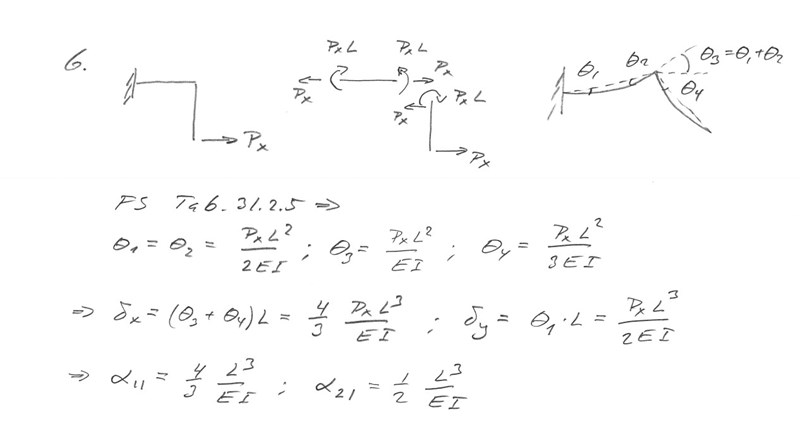 6.
Pₓ
PₓL PₓL
Pₓ Pₓ
PₓL
Pₓ
Pₓ
θ₁ θ₂ θ₃=θ₁+θ₂
θ₄
FS Tab. 31.2.5 ⇒
θ₁ = θ₂ = PₓL²/2EI ; θ₃ = PₓL²/EI ; θ₄ = PₓL²/3EI
⇒ δₓ = (θ₃ + θ₄)L = 4/3 PₓL³/EI ; δy = θ₁·L = PₓL³/2EI
⇒ α₁₁ = 4/3 L³/EI ; α₂₁ = 1/2 L³/EI